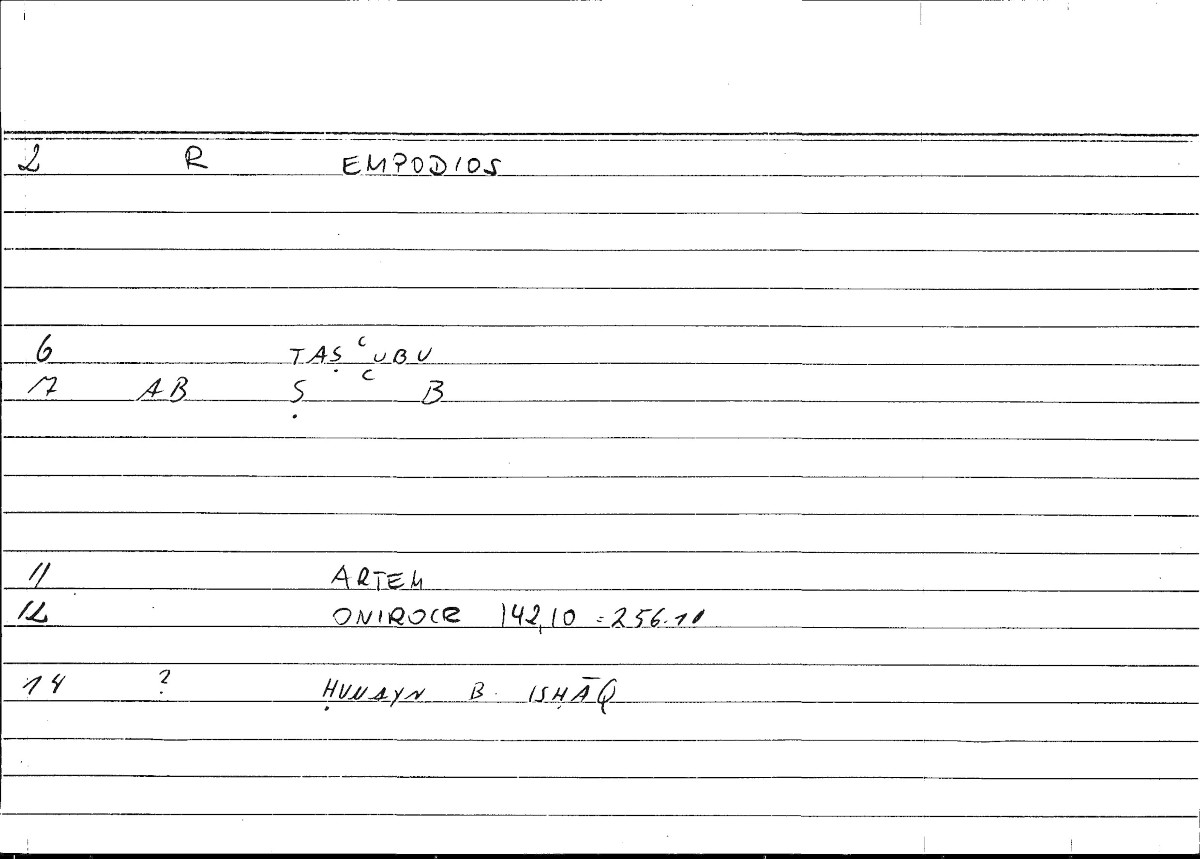 2 R EMPODIOS
6 TAṢʿUBU
7 AB Ṣ ʿ B
11 ARTEM
12 ONIROCR 142,10 = 256.10
14 ? ḤUNAYN B. ISḤĀQ